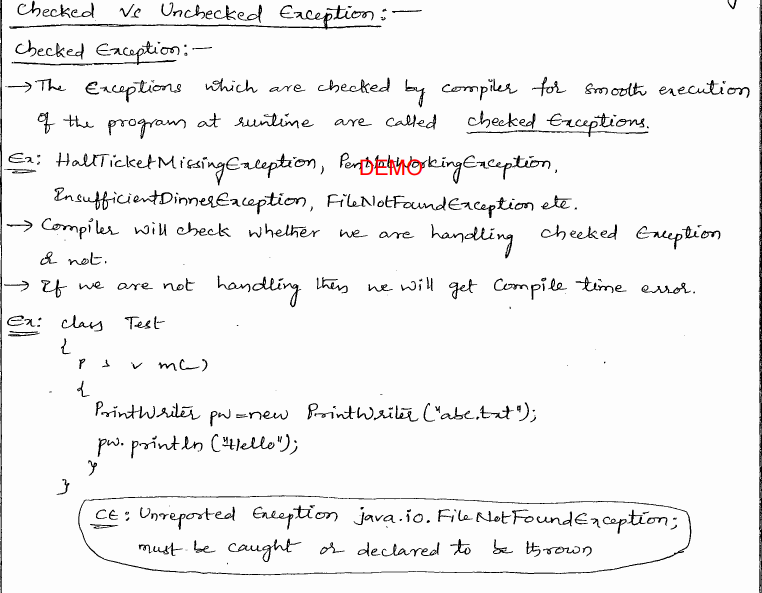 Checked Vs Unchecked Exception:—
Checked Exception:—
→ The Exceptions which are checked by compiler for smooth execution
of the program at runtime are called checked Exceptions.
Ex: HallTicketMissingException, PenNotWorkingException,
DEMO
InsufficientDinnerException, FileNotFoundException etc.
→ Compiler will check whether we are handling checked Exception
or not.
→ If we are not handling then we will get Compile time error.
Ex: class Test
{
P S V m(—)
{
PrintWriter pw=new PrintWriter ("abc.txt");
pw.println ("Hello");
}
}
CE: Unreported Exception java.io.FileNotFoundException;
must be caught or declared to be thrown